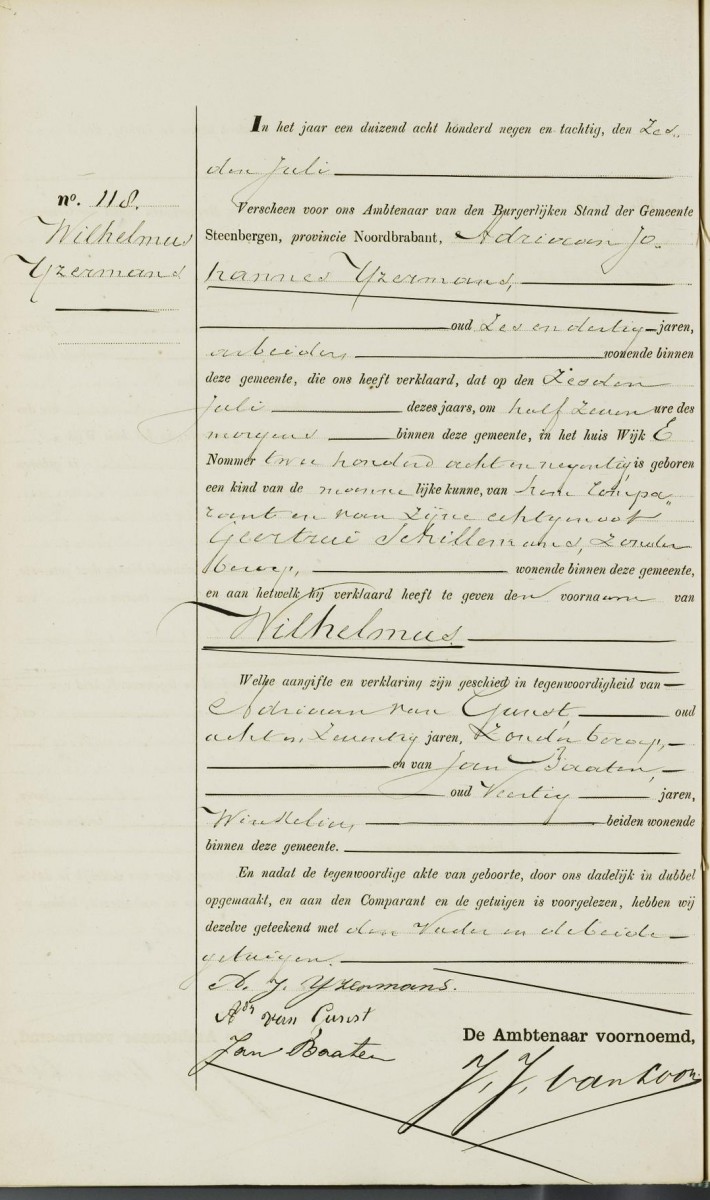 In het jaar een duizend acht honderd negen en tachtig, den Zes-
den Juli
nº. 118.
Wilhelmus
Yzermans
Verscheen voor ons Ambtenaar van den Burgerlijken Stand der Gemeente
Steenbergen, provincie Noordbrabant, Adriaan Jo-
hannes Yzermans,
oud Zes en dertig jaren,
arbeider, wonende binnen
deze gemeente, die ons heeft verklaard, dat op den Zesden
Juli dezes jaars, om half zeven ure des
morgens binnen deze gemeente, in het huis Wijk E
Nommer twee honderd acht en negentig is geboren
een kind van de mannelijke kunne, van hem Compa-
rant en van zijne echtgenoot
Geertrui Schillemans, zonder
beroep, wonende binnen deze gemeente,
en aan hetwelk hij verklaard heeft te geven den voornaam van
Wilhelmus.
Welke aangifte en verklaring zijn geschied in tegenwoordigheid van
Adriaan van Gunst oud
acht en Zeventig jaren, Zonder beroep,
en van Jan Baaten,
oud Veertig jaren,
Winkelier, beiden wonende
binnen deze gemeente.
En nadat de tegenwoordige akte van geboorte, door ons dadelijk in dubbel
opgemaakt, en aan den Comparant en de getuigen is voorgelezen, hebben wij
dezelve geteekend met den Vader en de beide
getuigen.
A. J. Yzermans.
Adr van Gunst
Jan Baaten
De Ambtenaar voornoemd,
J. J. van Loon.